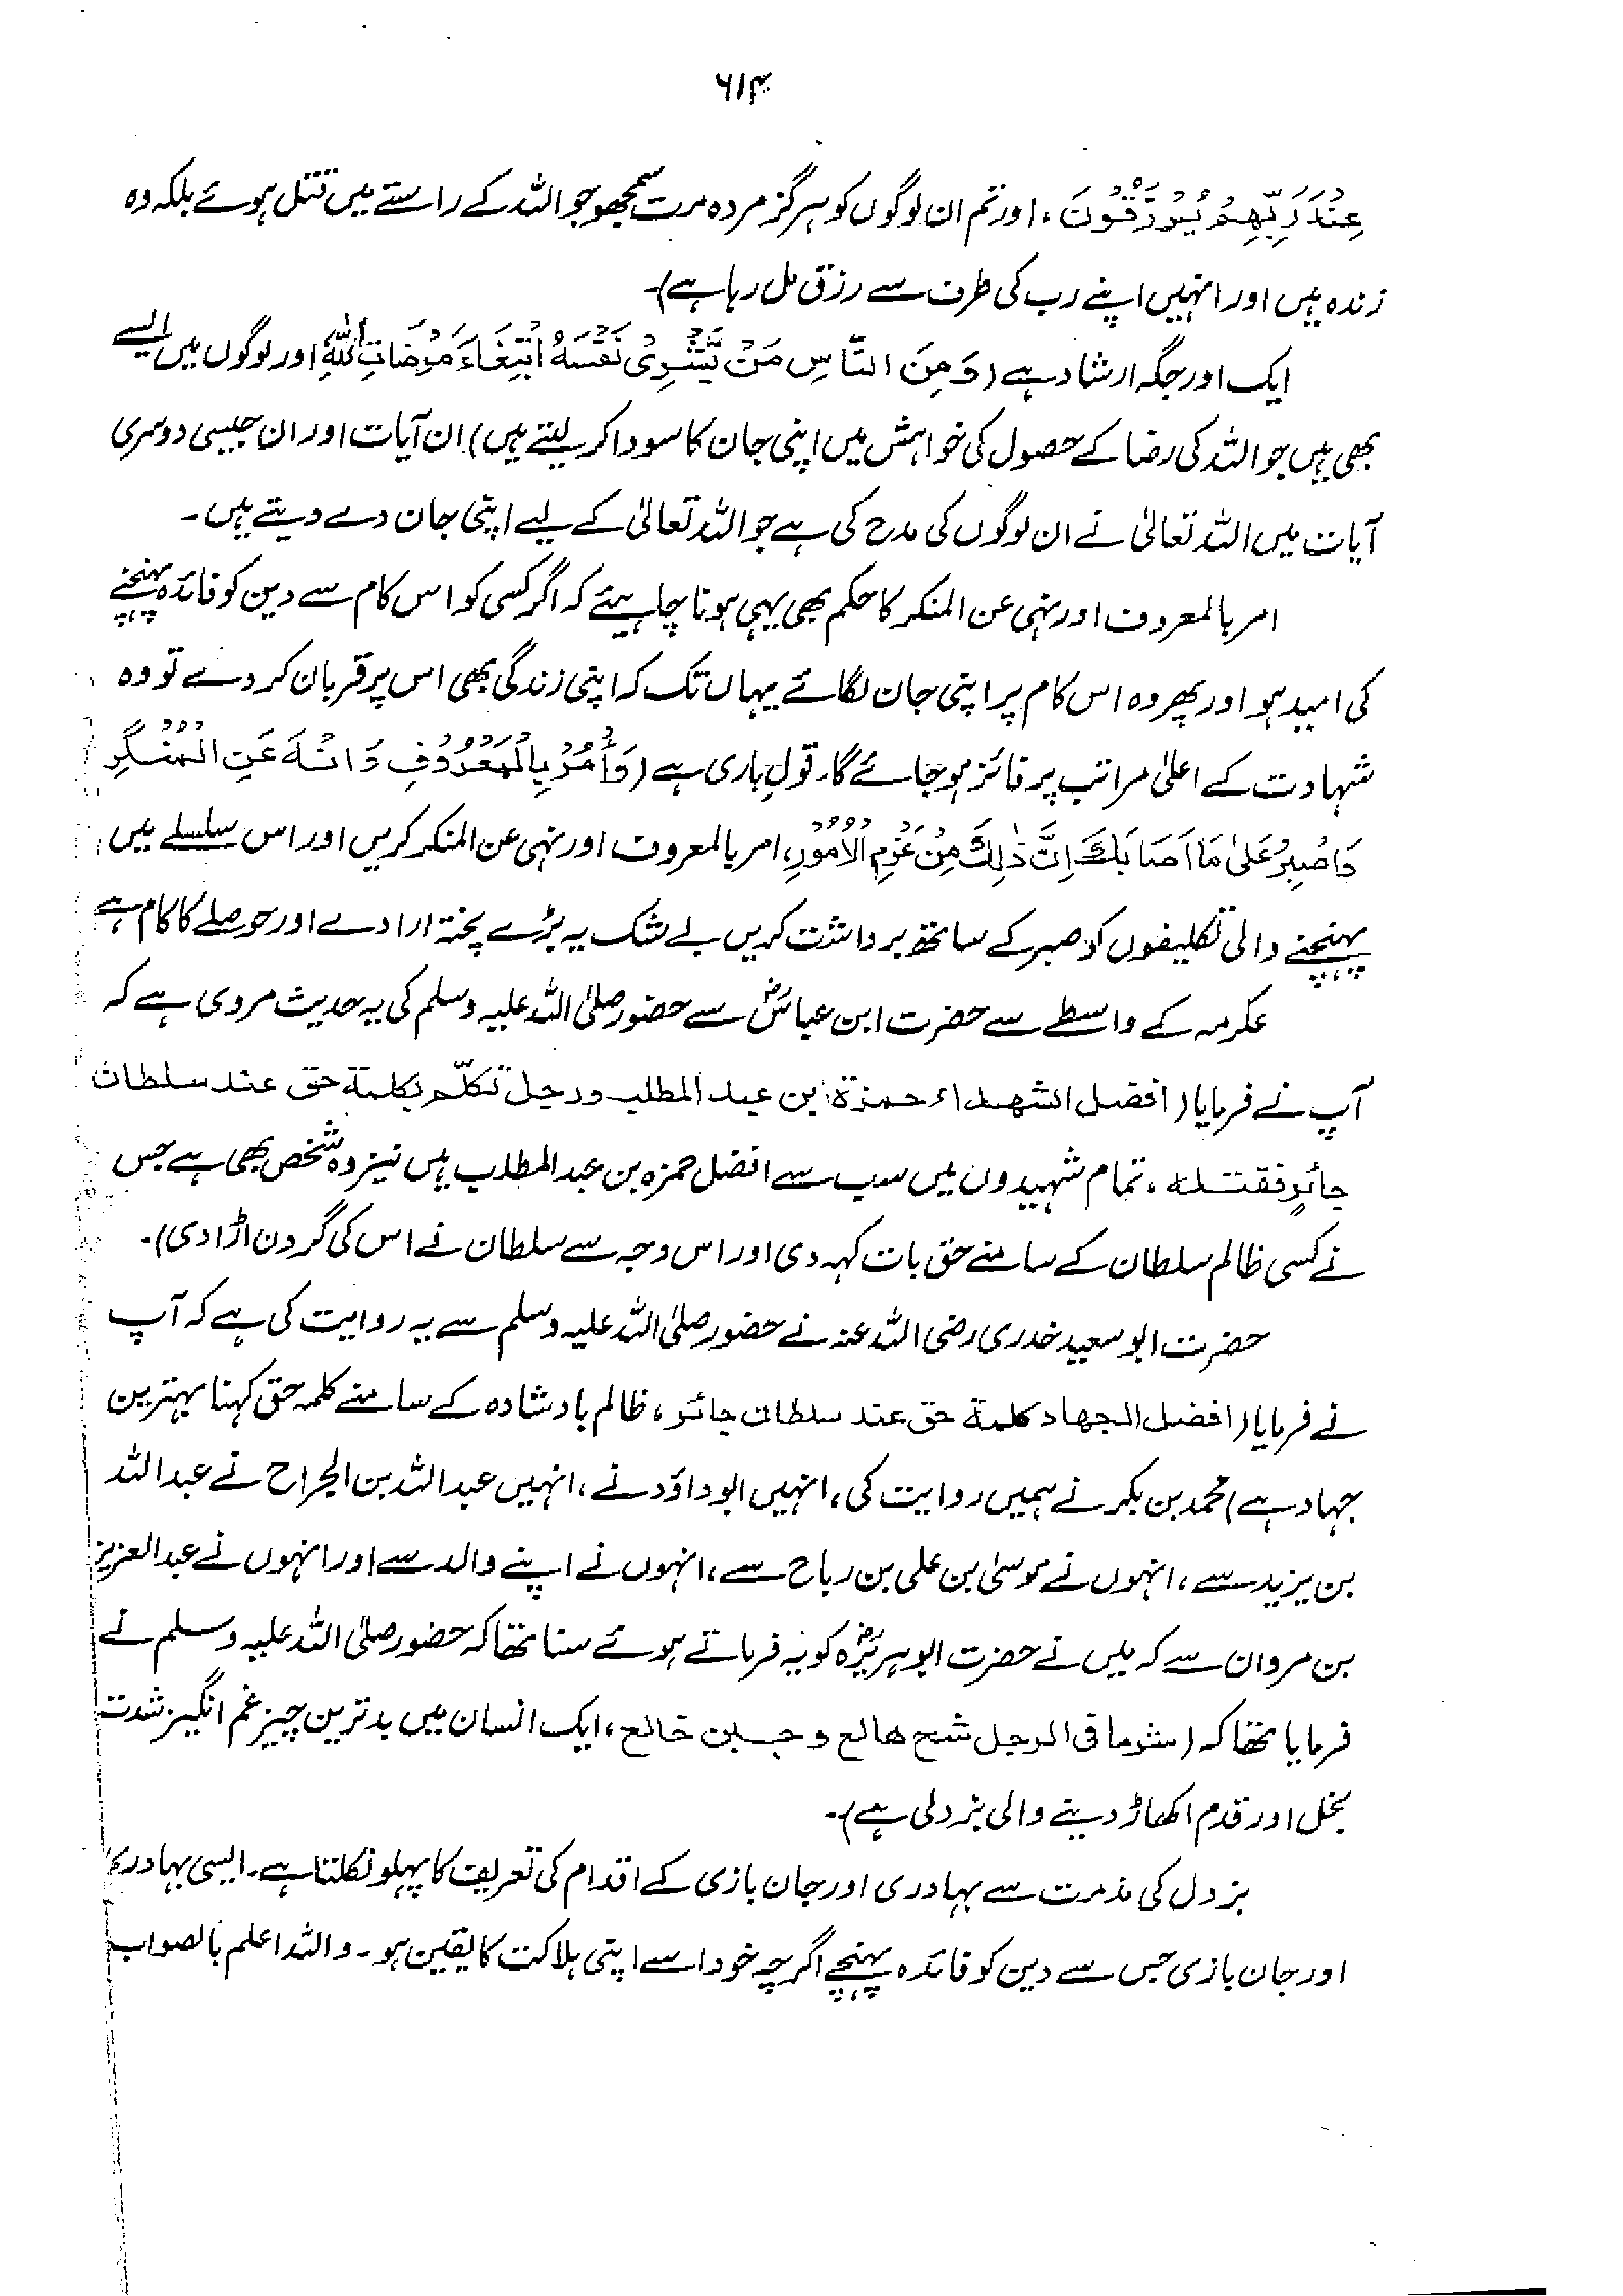 ۶۱۴
عِنْدَ رَبِّهِمْ يُرْزَقُوْنَ، اور تم ان لوگوں کو ہرگز مردہ مت سمجھو جو اللہ کے راستے میں قتل ہوئے بلکہ وہ
زندہ ہیں اور انہیں اپنے رب کی طرف سے رزق مل رہا ہے)۔
ایک اور جگہ ارشاد ہے (وَمِنَ النَّاسِ مَنْ يَّشْرِىْ نَفْسَهُ ابْتِغَاءَ مَرْضَاتِ اللهِ اور لوگوں میں ایسے
بھی ہیں جو اللہ کی رضا کے حصول کی خواہش میں اپنی جان کا سودا کر لیتے ہیں) ان آیات اور ان جیسی دوسری
آیات میں اللہ تعالیٰ نے ان لوگوں کی مدح کی ہے جو اللہ تعالیٰ کے لیے اپنی جان دے دیتے ہیں۔
امر بالمعروف اور نہی عن المنکر کا حکم بھی یہی ہونا چاہیئے کہ اگر کسی کو اس کام سے دین کو فائدہ پہنچنے
کی امید ہو اور پھر وہ اس کام پر اپنی جان لگائے یہاں تک کہ اپنی زندگی بھی اس پر قربان کر دے تو وہ
شہادت کے اعلیٰ مراتب پر فائز ہو جائے گا۔ قولِ باری ہے (وَأْمُرْ بِالْمَعْرُوْفِ وَانْهَ عَنِ الْمُنْكَرِ
وَاصْبِرْ عَلىٰ مَا اَصَابَكَ اِنَّ ذٰلِكَ مِنْ عَزْمِ الْاُمُوْرِ، امر بالمعروف اور نہی عن المنکر کریں اور اس سلسلے میں
پہنچنے والی تکلیفوں کو صبر کے ساتھ برداشت کریں بے شک یہ بڑے پختہ ارادے اور حوصلے کا کام ہے
عکرمہ کے واسطے سے حضرت ابن عباسؓ سے حضور صلی اللہ علیہ وسلم کی یہ حدیث مروی ہے کہ
آپ نے فرمایا (افضل الشهداء حمزة ابن عبد المطلب ورجل تكلّم بكلمة حق عند سلطان
جائرٍ فقتله، تمام شہیدوں میں سب سے افضل حمزہ بن عبد المطلب ہیں نیز وہ شخص بھی ہے جس
نے کسی ظالم سلطان کے سامنے حق بات کہہ دی اور اس وجہ سے سلطان نے اس کی گردن اڑا دی)۔
حضرت ابو سعید خدری رضی اللہ عنہ نے حضور صلی اللہ علیہ وسلم سے یہ روایت کی ہے کہ آپ
نے فرمایا (افضل الجهاد كلمة حق عند سلطان جائر، ظالم بادشادہ کے سامنے کلمہ حق کہنا بہترین
جہاد ہے) محمد بن بکر نے ہمیں روایت کی، انہیں ابو داؤد نے، انہیں عبد اللہ بن الجراح نے عبد اللہ
بن یزید سے، انہوں نے موسیٰ بن علی بن رباح سے، انہوں نے اپنے والد سے اور انہوں نے عبد العزیز
بن مروان سے کہ میں نے حضرت ابو ہریرہؓ کو یہ فرماتے ہوئے سنا تھا کہ حضور صلی اللہ علیہ وسلم نے
فرمایا تھا کہ (شر ما فى الرجل شح هالع و جبن خالع، ایک انسان میں بدترین چیز غم انگیز شدت
بخل اور قدم اکھاڑ دینے والی بزدلی ہے)۔
بزدل کی مذمت سے بہادری اور جان بازی کے اقدام کی تعریف کا پہلو نکلتا ہے۔ ایسی بہادری
اور جان بازی جس سے دین کو فائدہ پہنچے اگرچہ خود اسے اپنی ہلاکت کا یقین ہو۔ واللہ اعلم بالصواب